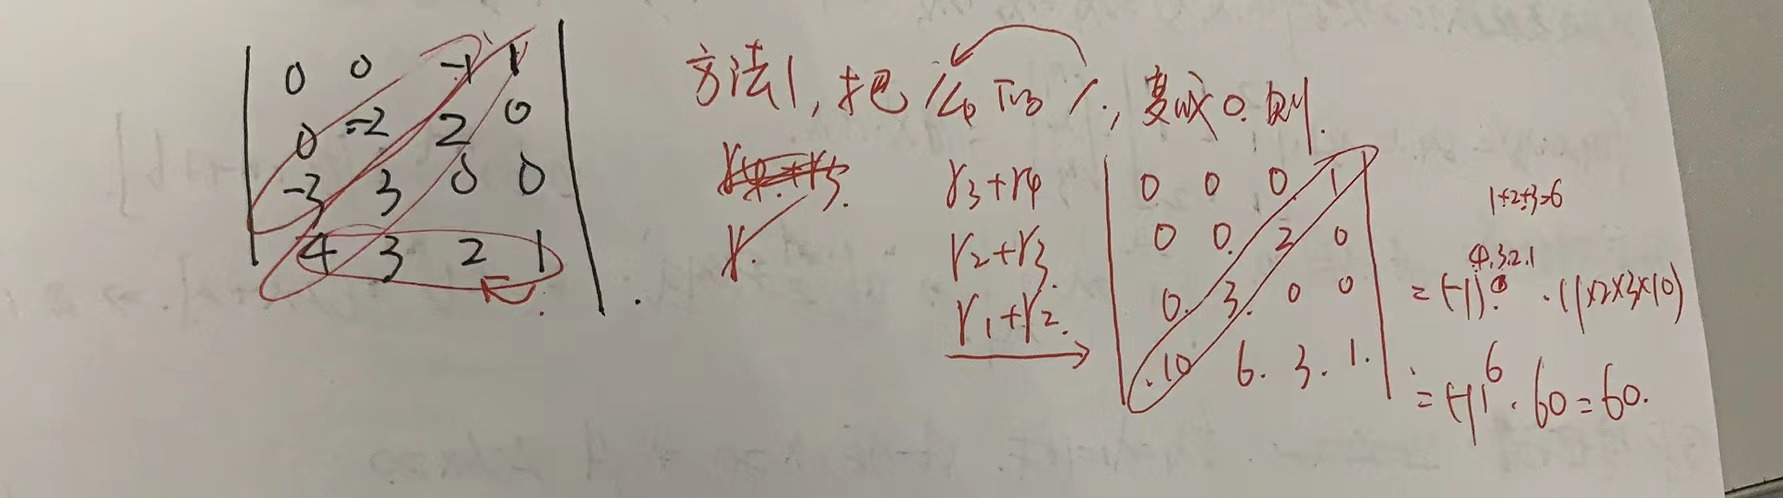 0 0 -1 1
0 -2 2 0
-3 3 0 0
4 3 2 1
方法1,把
变成0.则.
r3+r4
r2+r3
r1+r2.
0 0 0 1
0 0. 2 0
0. 3. 0 0
.10 6. 3. 1.
1+2+3=6
4.3.2.1
=(-1) .(1×2×3×10)
=(-1)6.60=60.